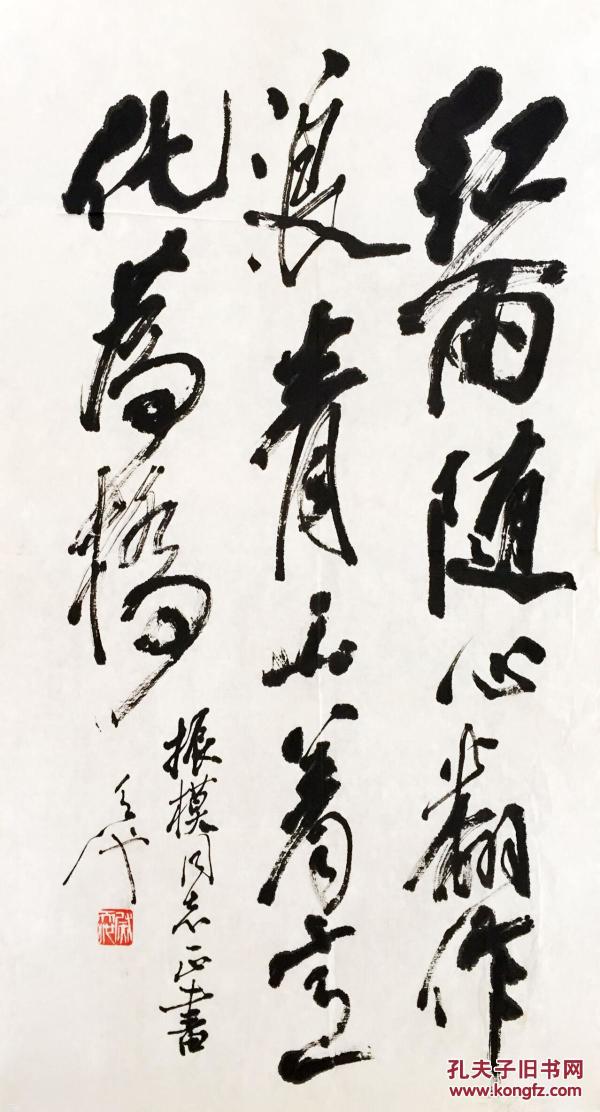 红雨随心翻作
浪青山着意
化為橋
振模同志正書
孔夫子旧书网
www.kongfz.com